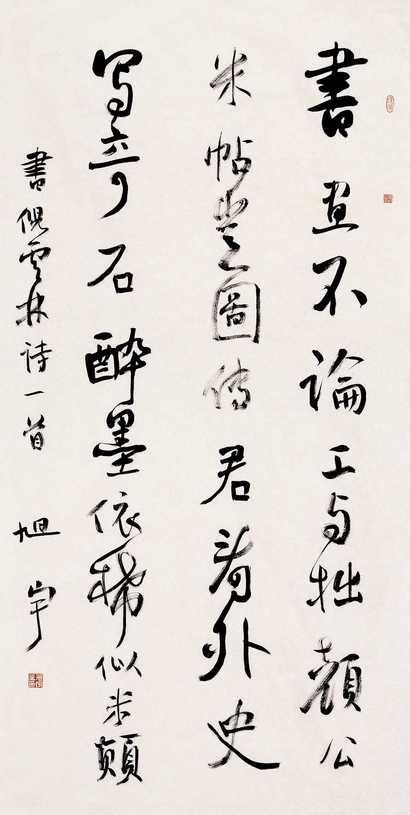 書畫不論工与拙顏公
米帖豈圖傳君看外史
寫奇石醉墨依稀似米顛
書倪雲林詩一首 旭宇